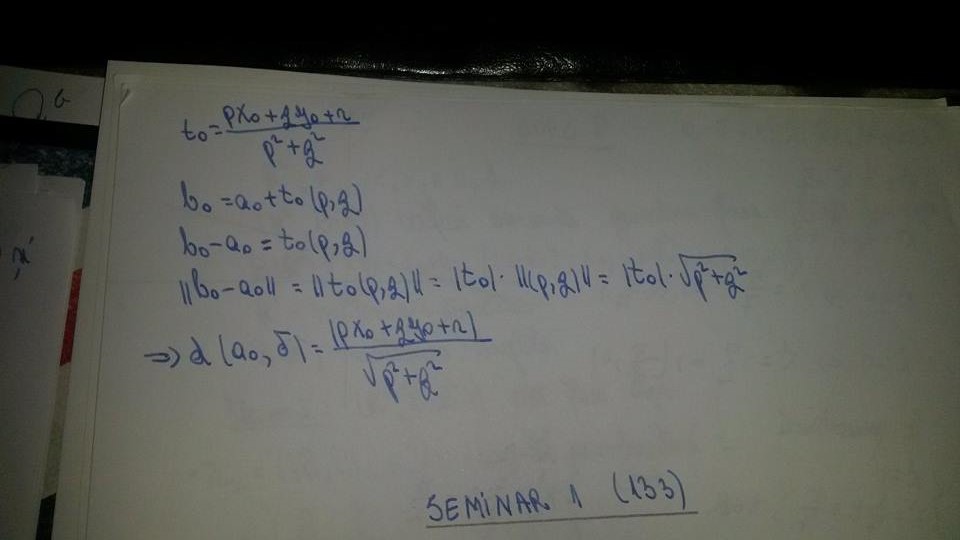 t₀ = (px₀ + qy₀ + r) / (p² + q²)
b₀ = a₀ + t₀(p,q)
b₀ - a₀ = t₀(p,q)
||b₀ - a₀|| = ||t₀(p,q)|| = |t₀| · ||(p,q)|| = |t₀| · √(p² + q²)
⇒ d(a₀, δ) = |px₀ + qy₀ + r| / √(p² + q²)
SEMINAR 1 (133)